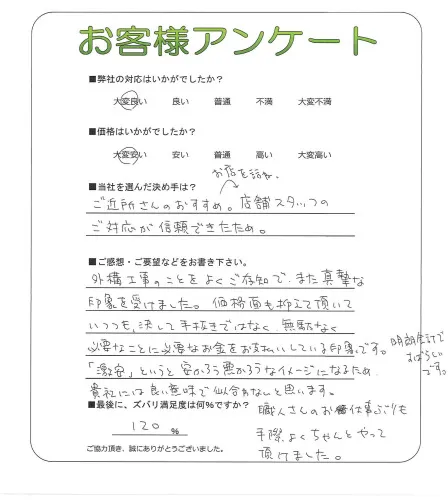 お客様アンケート
■弊社の対応はいかがでしたか？
大変良い 良い 普通 不満 大変不満
■価格はいかがでしたか？
大変安い 安い 普通 高い 大変高い
お店を訪ね、
■当社を選んだ決め手は？
ご近所さんのおすすめ。店舗スタッフの
ご対応が信頼できたため。
■ご感想・ご要望などをお書き下さい。
外構工事のことをよくご存知で、また真摯な
印象を受けました。価格面も抑えて頂いて
いつつも、決して手抜きではなく、無駄なく
必要なことに必要なお金をお支払いしている印象です。
明朗会計で
すばらしい
です。
「激安」というと安かろう悪かろうなイメージになるため
貴社には良い意味で似合わないと思います。
■最後に、ズバリ満足度は何％ですか？
120 %
職人さんのお仕事ぶりも
手際よくちゃんとやって
頂けました。
ご協力頂き、誠にありがとうございました。